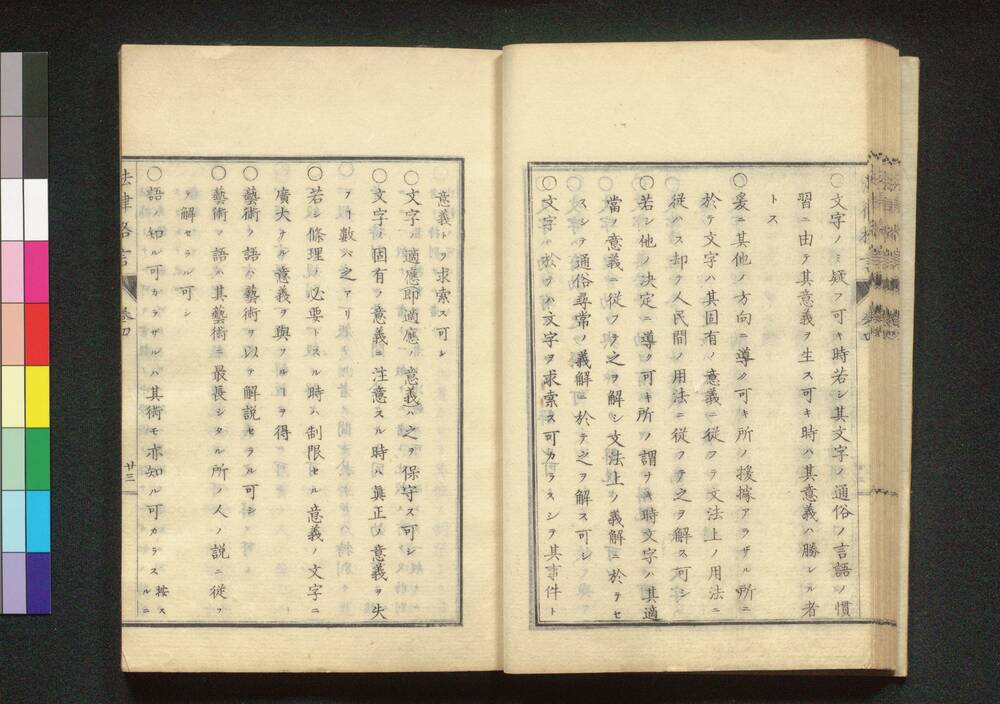 ○文字ノミ疑フ可キ時若シ其文字ノ通俗ノ言語ノ慣
習ニ由テ其意義ヲ生ス可キ時ハ其意義ハ勝レル者
トス
○爰ニ其他ノ方向ニ導ク可キ所ノ援據アラザル所ニ
於テ文字ハ其固有ノ意義ニ從フテ文法上ノ用法ニ
從ハス却テ人民間ノ用法ニ從フテ之ヲ解ス可シ
○若シ他ノ決定ニ導ク可キ所ノ謂ナキ時文字ハ其適
當ノ意義ニ從フテ之ヲ解シ文法上ノ義解ニ於テセ
スシテ通俗尋常ノ義解ニ於テ之ヲ解ス可シ
○文字ニ於テハ文字ヲ求索ス可カラスシテ其事件ト
意義トヲ求索ス可シ
○文字ノ適應即適應ノ意義ハ之ヲ保守ス可シ
○文字ノ固有ノ意義ニ注意スル時ハ眞正ノ意義ヲ失
フ数ハ之アリ
○若シ條理ノ必要トスル時ハ制限セル意義ノ文字ニ
廣大ナル意義ヲ與フルヿヲ得
○藝術ノ語ハ藝術ヲ以テ解説セラル可シ
○藝術ノ語ハ其藝術ニ最長シタル所ノ人ノ説ニ從フ
テ解セラル可シ
○語ノ知ル可カラザルハ其術モ亦知ル可カラス 按スルニ
法律格言 卷四 廿三